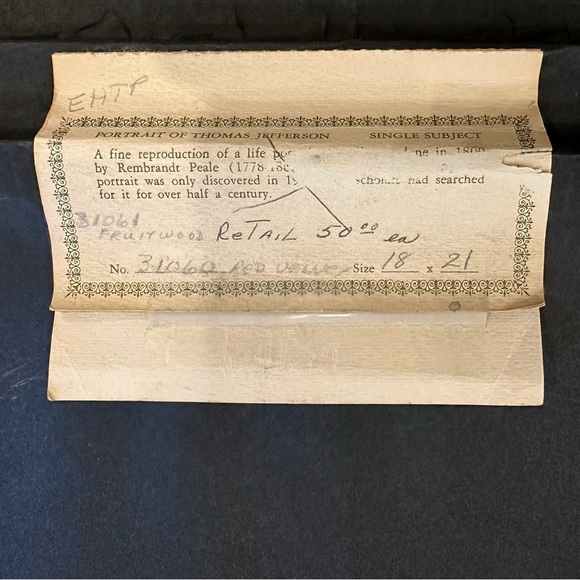 EHTP
PORTRAIT OF THOMAS JEFFERSON SINGLE SUBJECT
A fine reproduction of a life in 1800
by Rembrandt Peale (1778
portrait was only discovered in had searched
for it for over half a century.
31061
FRUITWOOD RETAIL 50.00 ea
No. 31060 RED VELVET Size 18 x 21